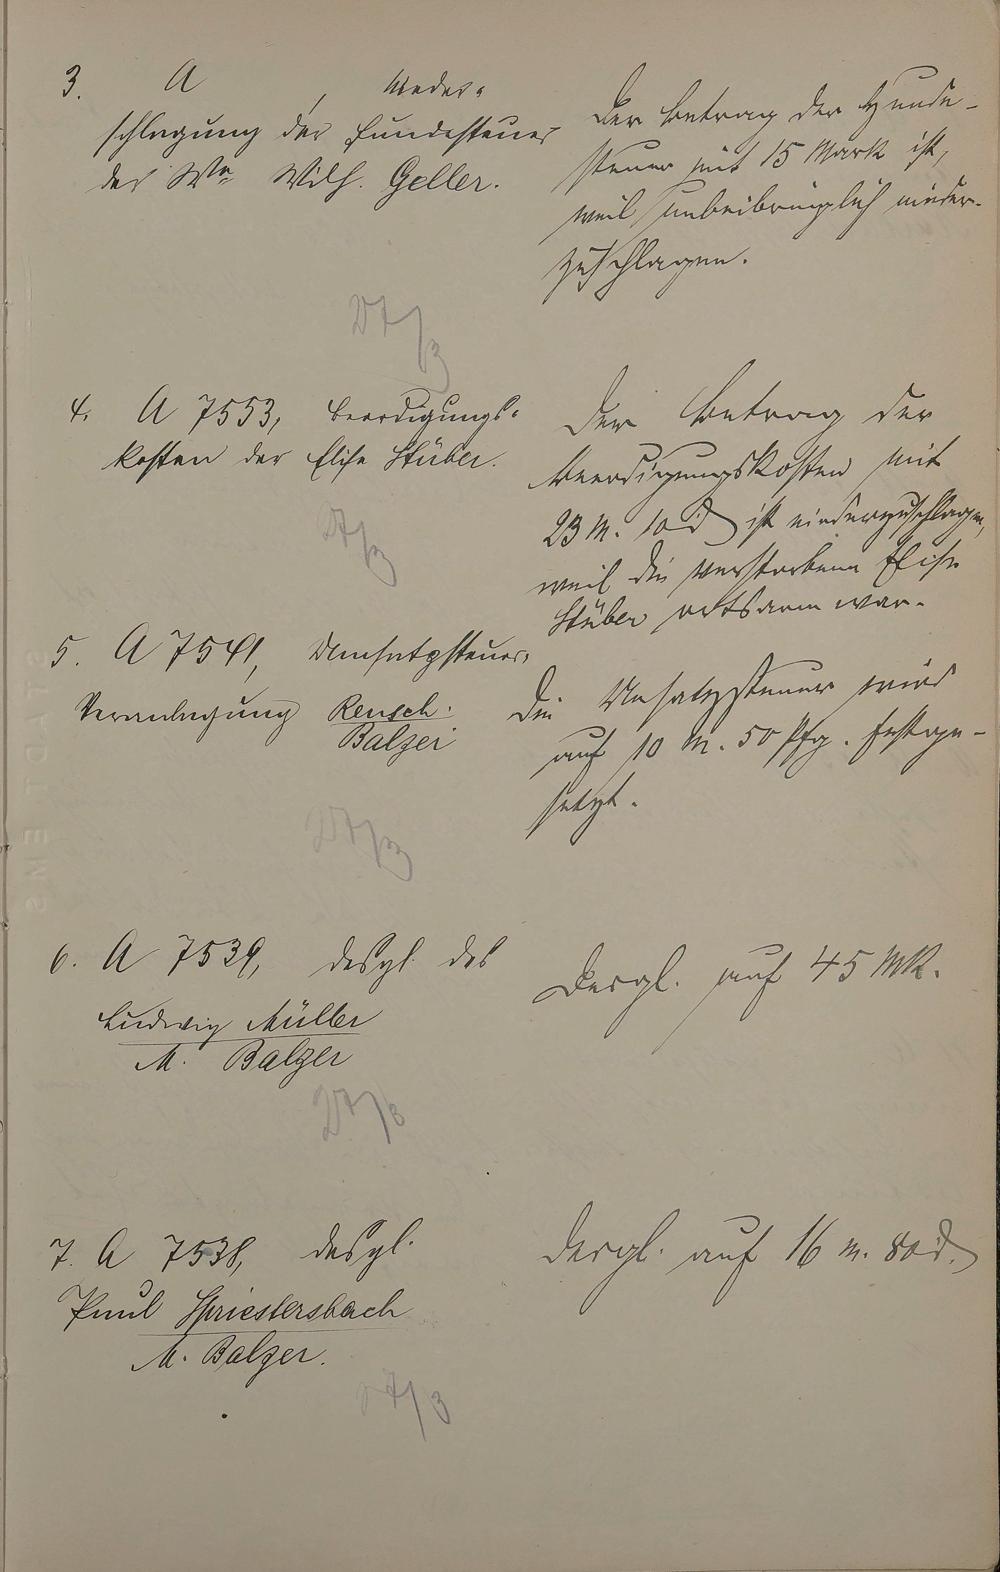 3. A , Nieder=
schlagung der Hundesteuer
der Wwe Wilh. Geller.
Der Betrag der Hunde-
steuer mit 15 Mark ist,
weil unbeibringlich nieder-
zuschlagen.
27/3
4. A 7553, Beerdigungs=
kosten der Elise Stüber.
Der Betrag der
Beerdigungskosten mit
23 M. 10 d ist niederzuschlagen,
weil die verstorbene Elise
Stüber ortsarm war.
27/3
5. A 7541, Umsatzsteuer=
Veranlagung Rensch.
Balzer
Die Umsatzsteuer wird
auf 10 M. 50 Pfg. festge-
setzt.
27/3
6. A 7539, desgl. des
Ludwig Müller
M. Balzer
Desgl. auf 45 Mk.
27/3
7. A 7538, desgl.
Paul Spriestersbach
M. Balzer.
Desgl. auf 16 M. 80 d.
27/3
STADT EMS